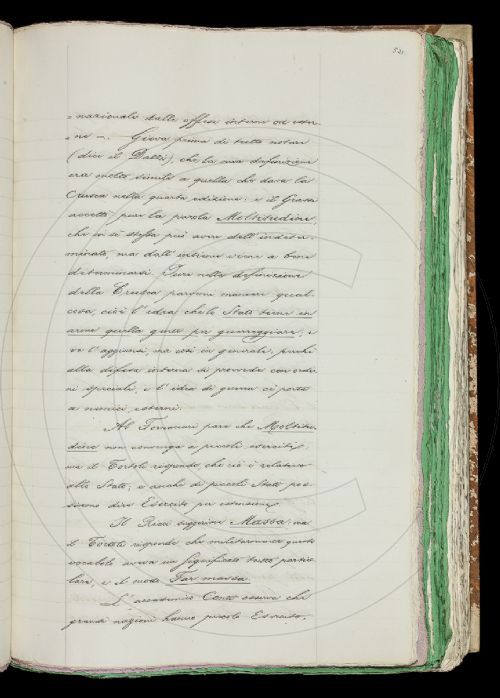 521.
nazionali dalle offese interne od ester-
ne -. Giova prima di tutto notare
(dice il Dalzi), che la sua definizione
era molto simile a quella che dava la
Crusca nella quarta edizione: e il Grassi
accettò pur la parola Moltitudine,
che in sè stessa può avere dell'indeter-
minato, ma dall'insieme viene a bene
determinarsi. Pure nella definizione
della Crusca parevami mancare qual-
cosa, cioè l'idea che lo Stato tiene in
arme quella gente per guerreggiare; e
ve l'aggiunsi, ma così in generale; perchè
alla difesa interna si provvede con ordi-
ni speciali, e l'idea di guerra ci porta
a nemici esterni.
Al Tommaseo pare che Moltitu-
dine non convenga a piccoli eserciti;
ma il Tortoli risponde, che ciò è relativo
allo Stato; e anche di piccoli Stati pos-
siamo dire Esercito per estensione.
Il Ricci suggerisce Massa: ma
il Tortoli risponde che militarmente questo
vocabolo aveva un significato tutto partico-
lare, e il modo Far massa.
L'accademico Conti osserva che
grandi nazioni hanno piccolo Esercito,